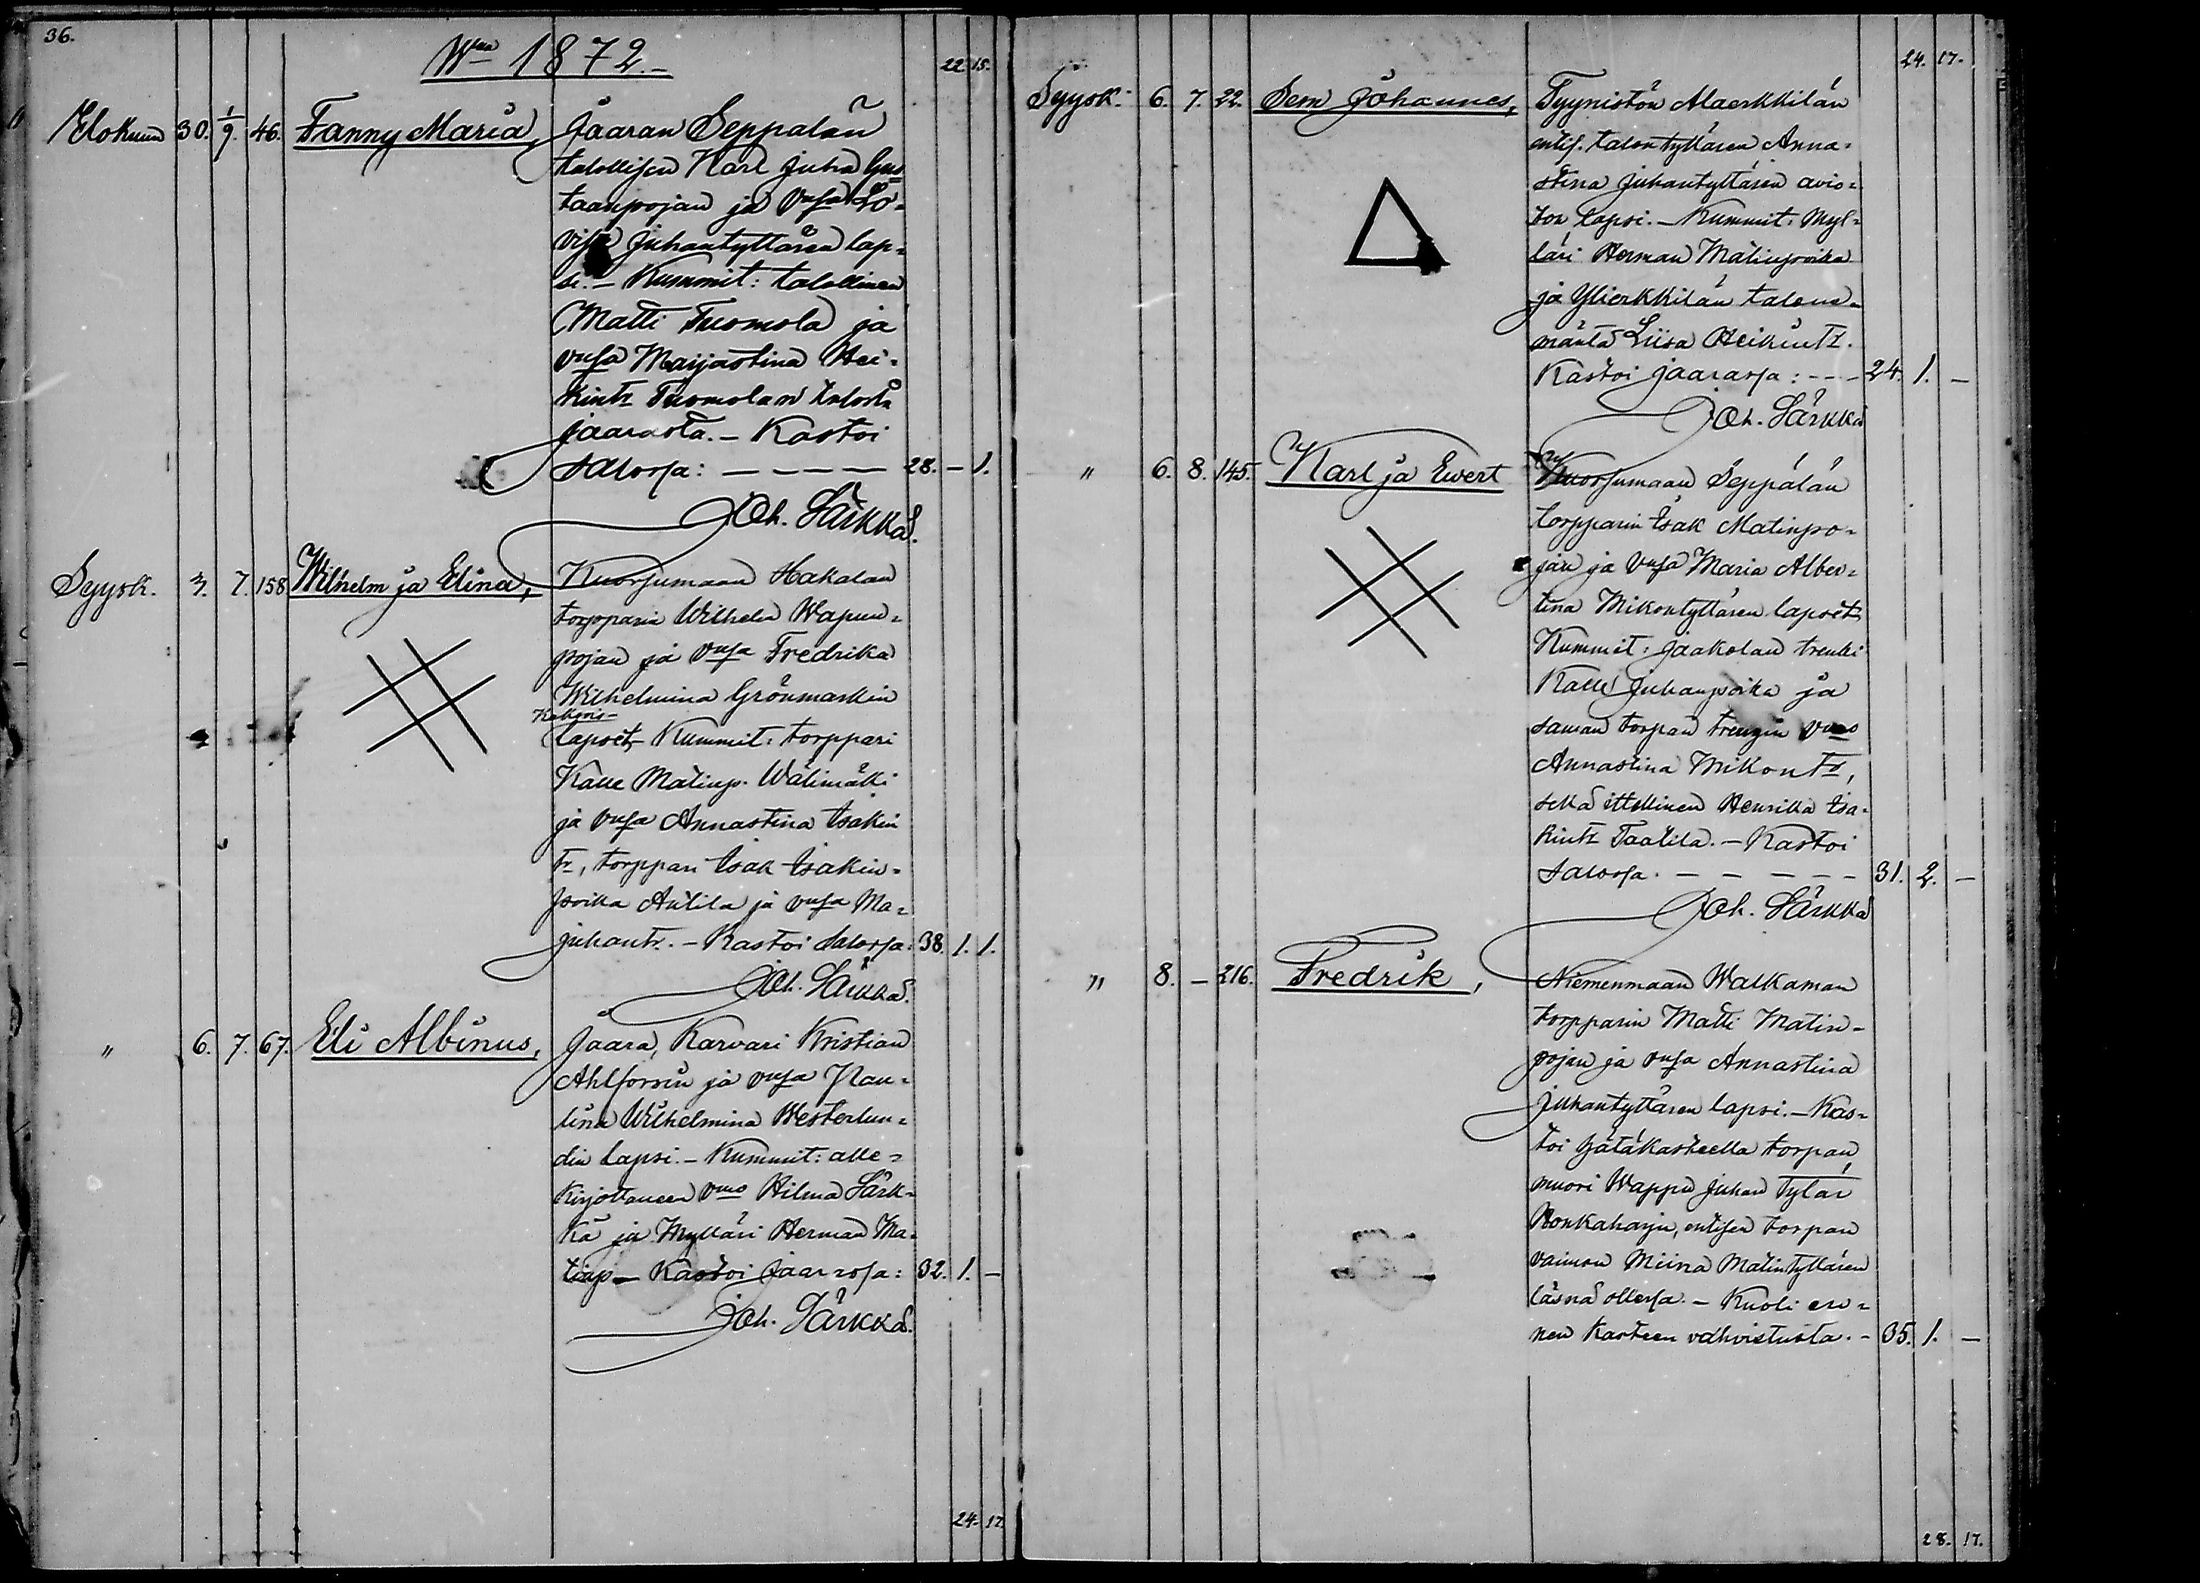 36.
Wna 1872.-
22. 15.
Elokuun 30. 1/9. 46. Fanny Maria, Jaaran Seppälän
talollisen Karl Juha Gus
taanpojan ja vnsa Lo=
visa Juhantyttären lap=
si. - Kummit: talollinen
Matti Tuomola ja
vnsa Maijastina Hei=
kintr Tuomolan talosta
Jaarasta. - Kastoi
Salossa: - - - - 28. - 1.
Joh. Särkkä.
Syysk. 3. 7. 158 Wilhelm ja Elina, Kuorsumaan Hakalan
torpparin Wilhelm Wapun=
pojan ja vnsa Fredrika
Wilhelmina Grönmarkin
Kaksois-
lapset, Kummit: torppari
Kalle Matinp. Wälimäki
ja vnsa Annastina Isakin
tr, torppari Isak Isakin=
poika Antila ja vnsa Ma=
juhantr. - Kastoi Salossa: 38. 1. 1.
Joh. Särkkä.
" 6. 7. 67. Eli Albinus, Jaara, Karvari Kristian
Ahlforsin ja vnsa Nau=
lina Wilhelmina Westerlun=
din lapsi. - Kummit: alle=
kirjottaneen vmo Hilma Särk=
kä ja Mylläri Herman Ma=
tinp - Kastoi Jaarassa: 32. 1. -
Joh. Särkkä.
24. 17.
24. 17.
Syysk. 6. 7. 22. Sem Johannes, Tyynistön Alaerkkilän
entis. talon tyttären Anna=
stina Juhantyttären avio=
ton lapsi. - Kummit: Myl=
läri Herman Matinpoika
ja Ylierkkilän talone=
mäntä Liisa Heikintr.
Kastoi Jaarassa: - - - 24. 1. -
Joh. Särkkä
" 6. 8. 145. Karl ja Ewert Kuorsumaan Seppälän
torpparin Isak Matinpo=
jan ja vnsa Maria Alber=
tina Mikontyttären lapset
Kummit: Jaakolan trenki
Kalle Juhanpoika ja
saman torpan trengin vmo
Annastina Mikontr,
sekä ittellinen Henrikka Isa=
kintr Taatila. - Kastoi
Salossa. - - - - - 31. 2. -
Joh. Särkkä
" 8. - 216. Fredrik, Niemenmaan Walkaman
torpparin Matti Matin=
pojan ja vnsa Annastina
Juhantyttären lapsi. - Kas=
toi hätäkasteella torpan
muori Wappu Juhan Tytär
Ronkaharju, entisen torpan
vaimon Miina Matintyttären
läsnä ollessa. - Kuoli en=
nen kasteen vahvistusta. - 35. 1. -
28. 17.